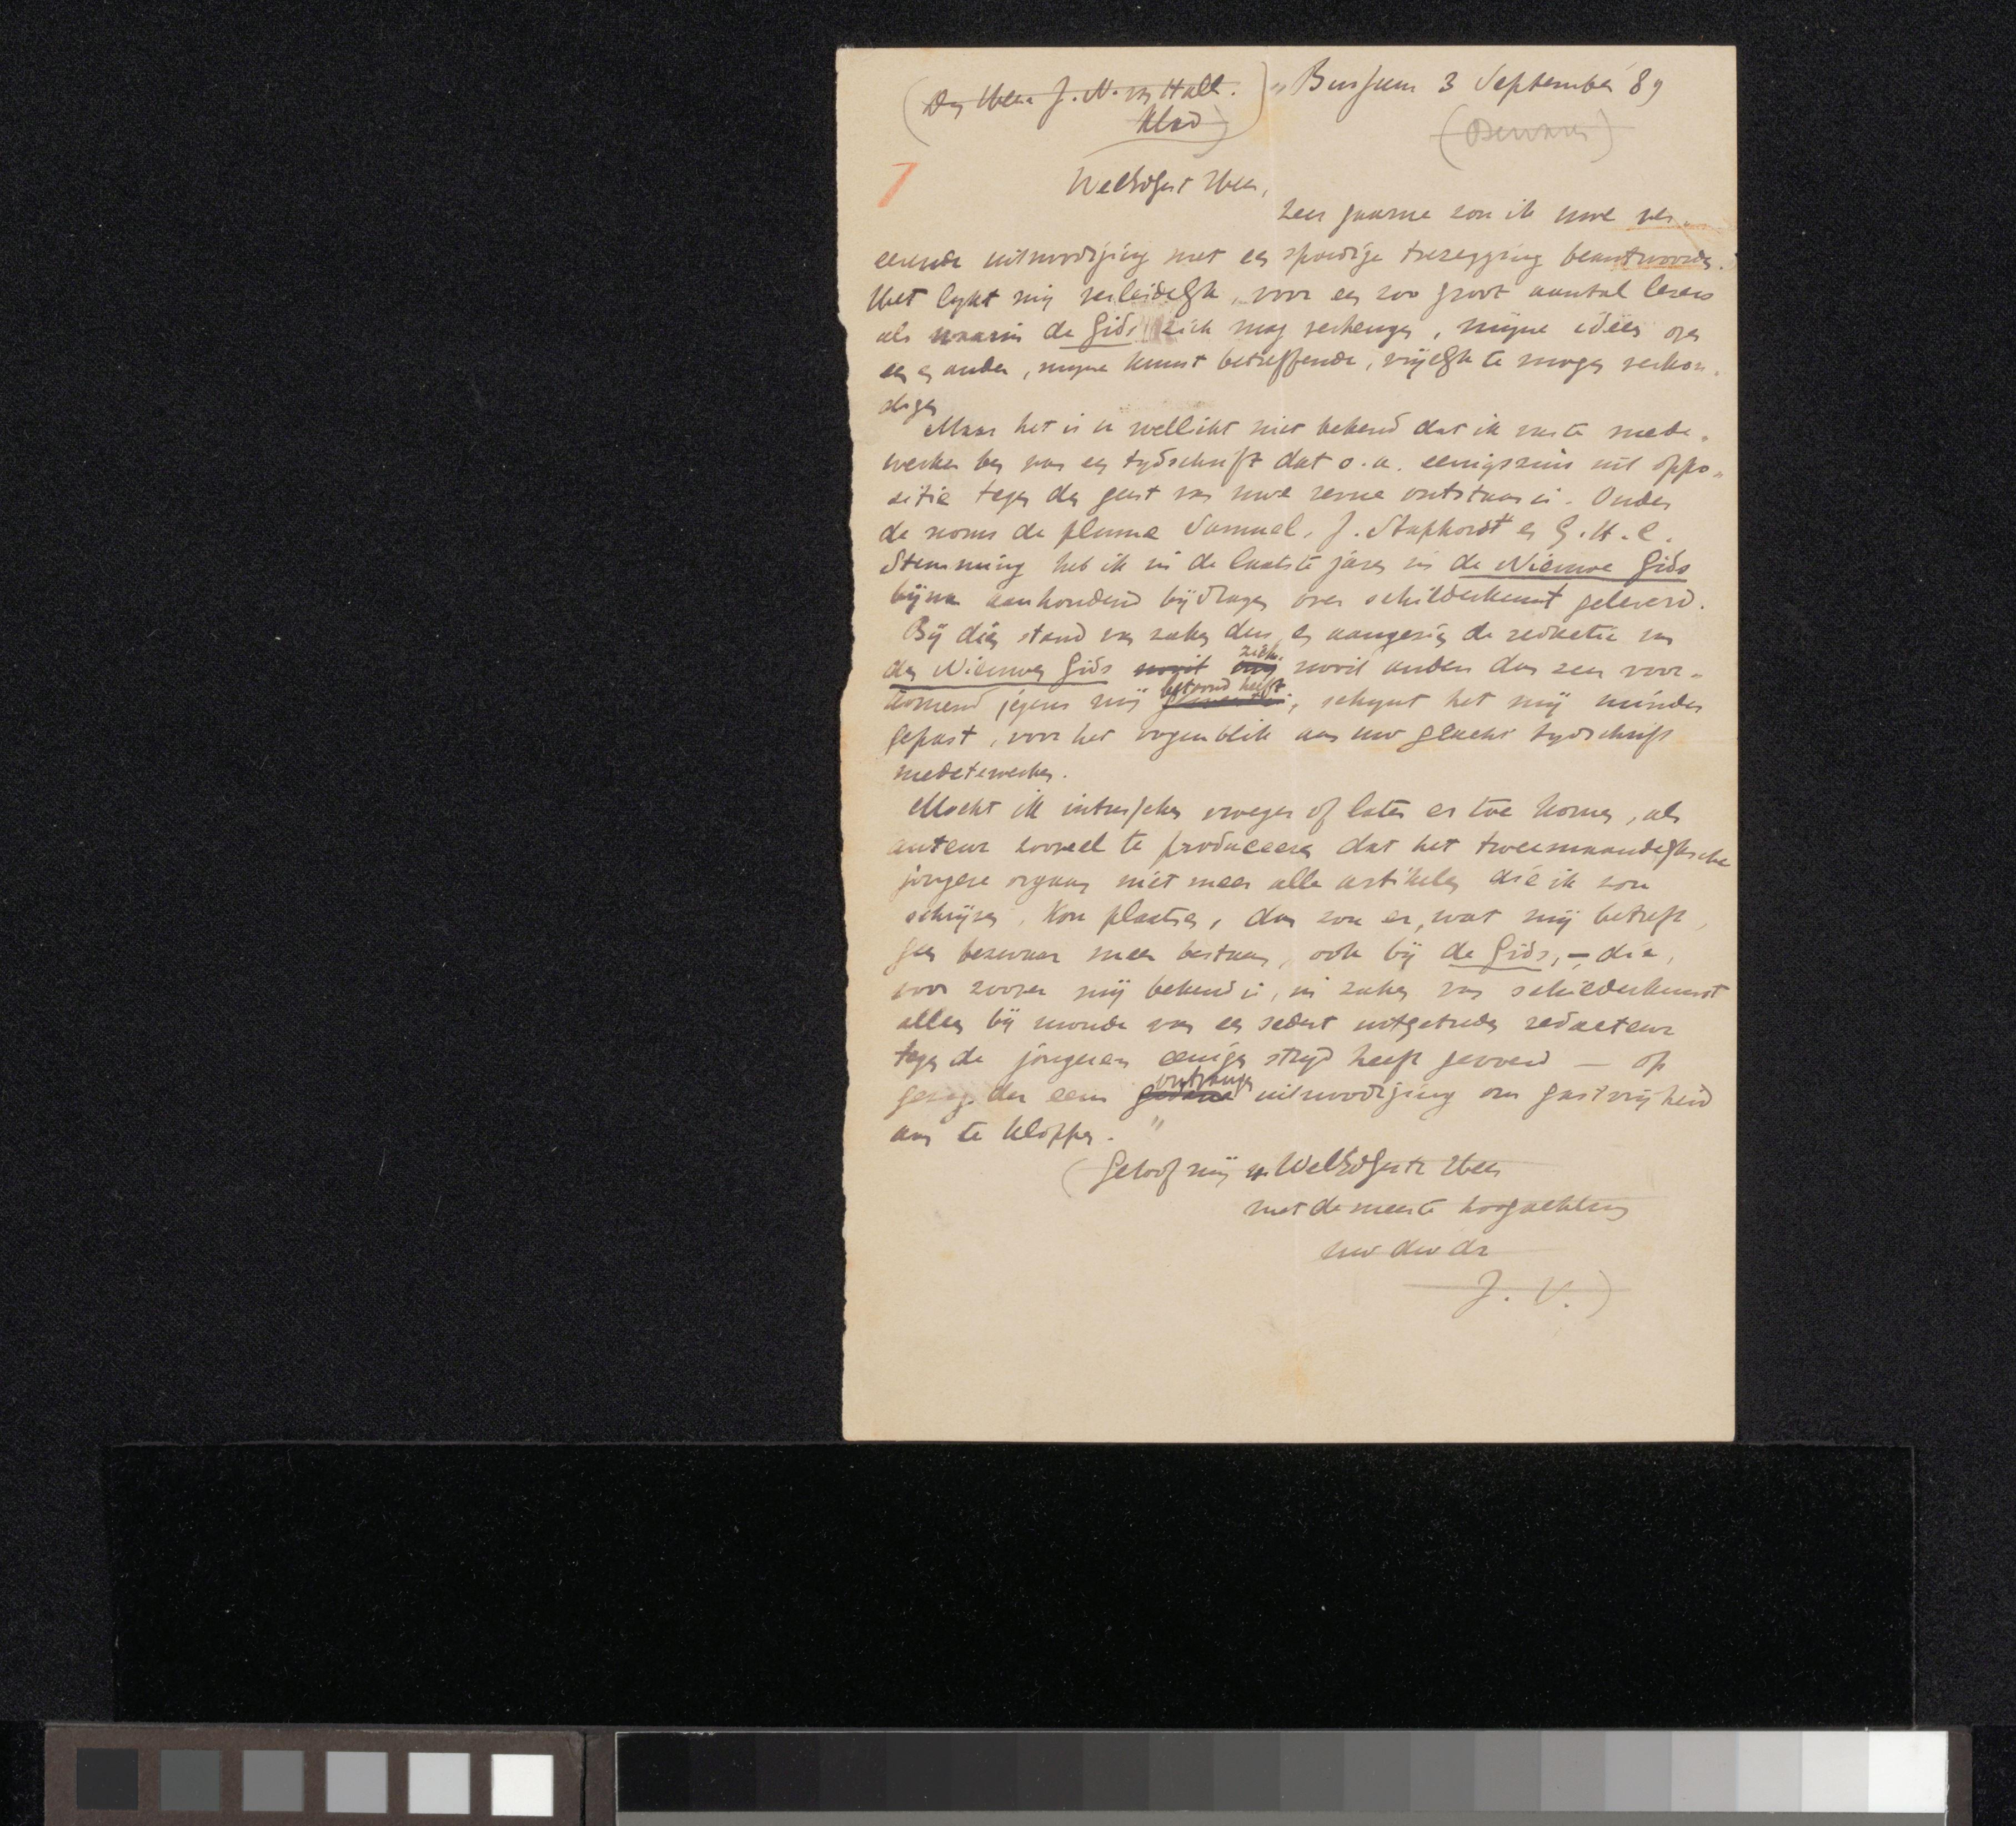 (Den Heer J. N. van Hall.) „Bussum 3 September 89
Klad) (Bewaren)
7 WelEdGest Heer,
Zeer gaarne zou ik uwe ver-
eerende uitnoodiging met een spoedige toezegging beantwoorden.
Het lykt mij verleidelijk, voor een zoo groot aantal lezers
als waarin de Gids zich mag verheugen, mijne ideën over
een en ander, mijne kunst betreffende, vrijelijk te mogen verkon-
digen
Maar het is u wellicht niet bekend dat ik vaste mede-
werker ben van een tydschrift dat o.a. eenigszins uit oppo-
sitie tegen den geest van uwe revue ontstaan is. Onder
de noms de plume Samuel, J. Staphorst en G. H. C.
Stemming heb ik in de laatste jaren in de Nieuwe Gids
bijna aanhoudend bijdragen over schilderkunst geleverd.
Bij dien stand van zaken dus, en aangezien de redactie van
den Nieuwen Gids nooit zich nooit anders dan zeer voor-
komend jegens mij betoond heeft, schynt het mij minder
gepast, voor het oogenblik aan uw geacht tydschrift
medetewerken.
Mocht ik intusschen vroeger of later er toe komen, als
auteur zooveel te produceeren dat het tweemaandelijksche
jongere orgaan niet meer alle artikelen die ik zou
schrijven, kon plaatsen, dan zou er, wat mij betreft,
geen bezwaar meer bestaan, ook bij de Gids, – die,
voor zoover mij bekend is, in zaken van schilderkunst
alleen bij monde van een sedert uitgetreden redacteur
tegen de jongeren eenigen stryd heeft gevoerd — op
gezag der eens ontvangen uitnoodiging om gastvrijheid
aan te kloppen. "
(Geloof mij WelEdGeste Heer
met de meeste hoogachting
uw dw dr
J. V.)